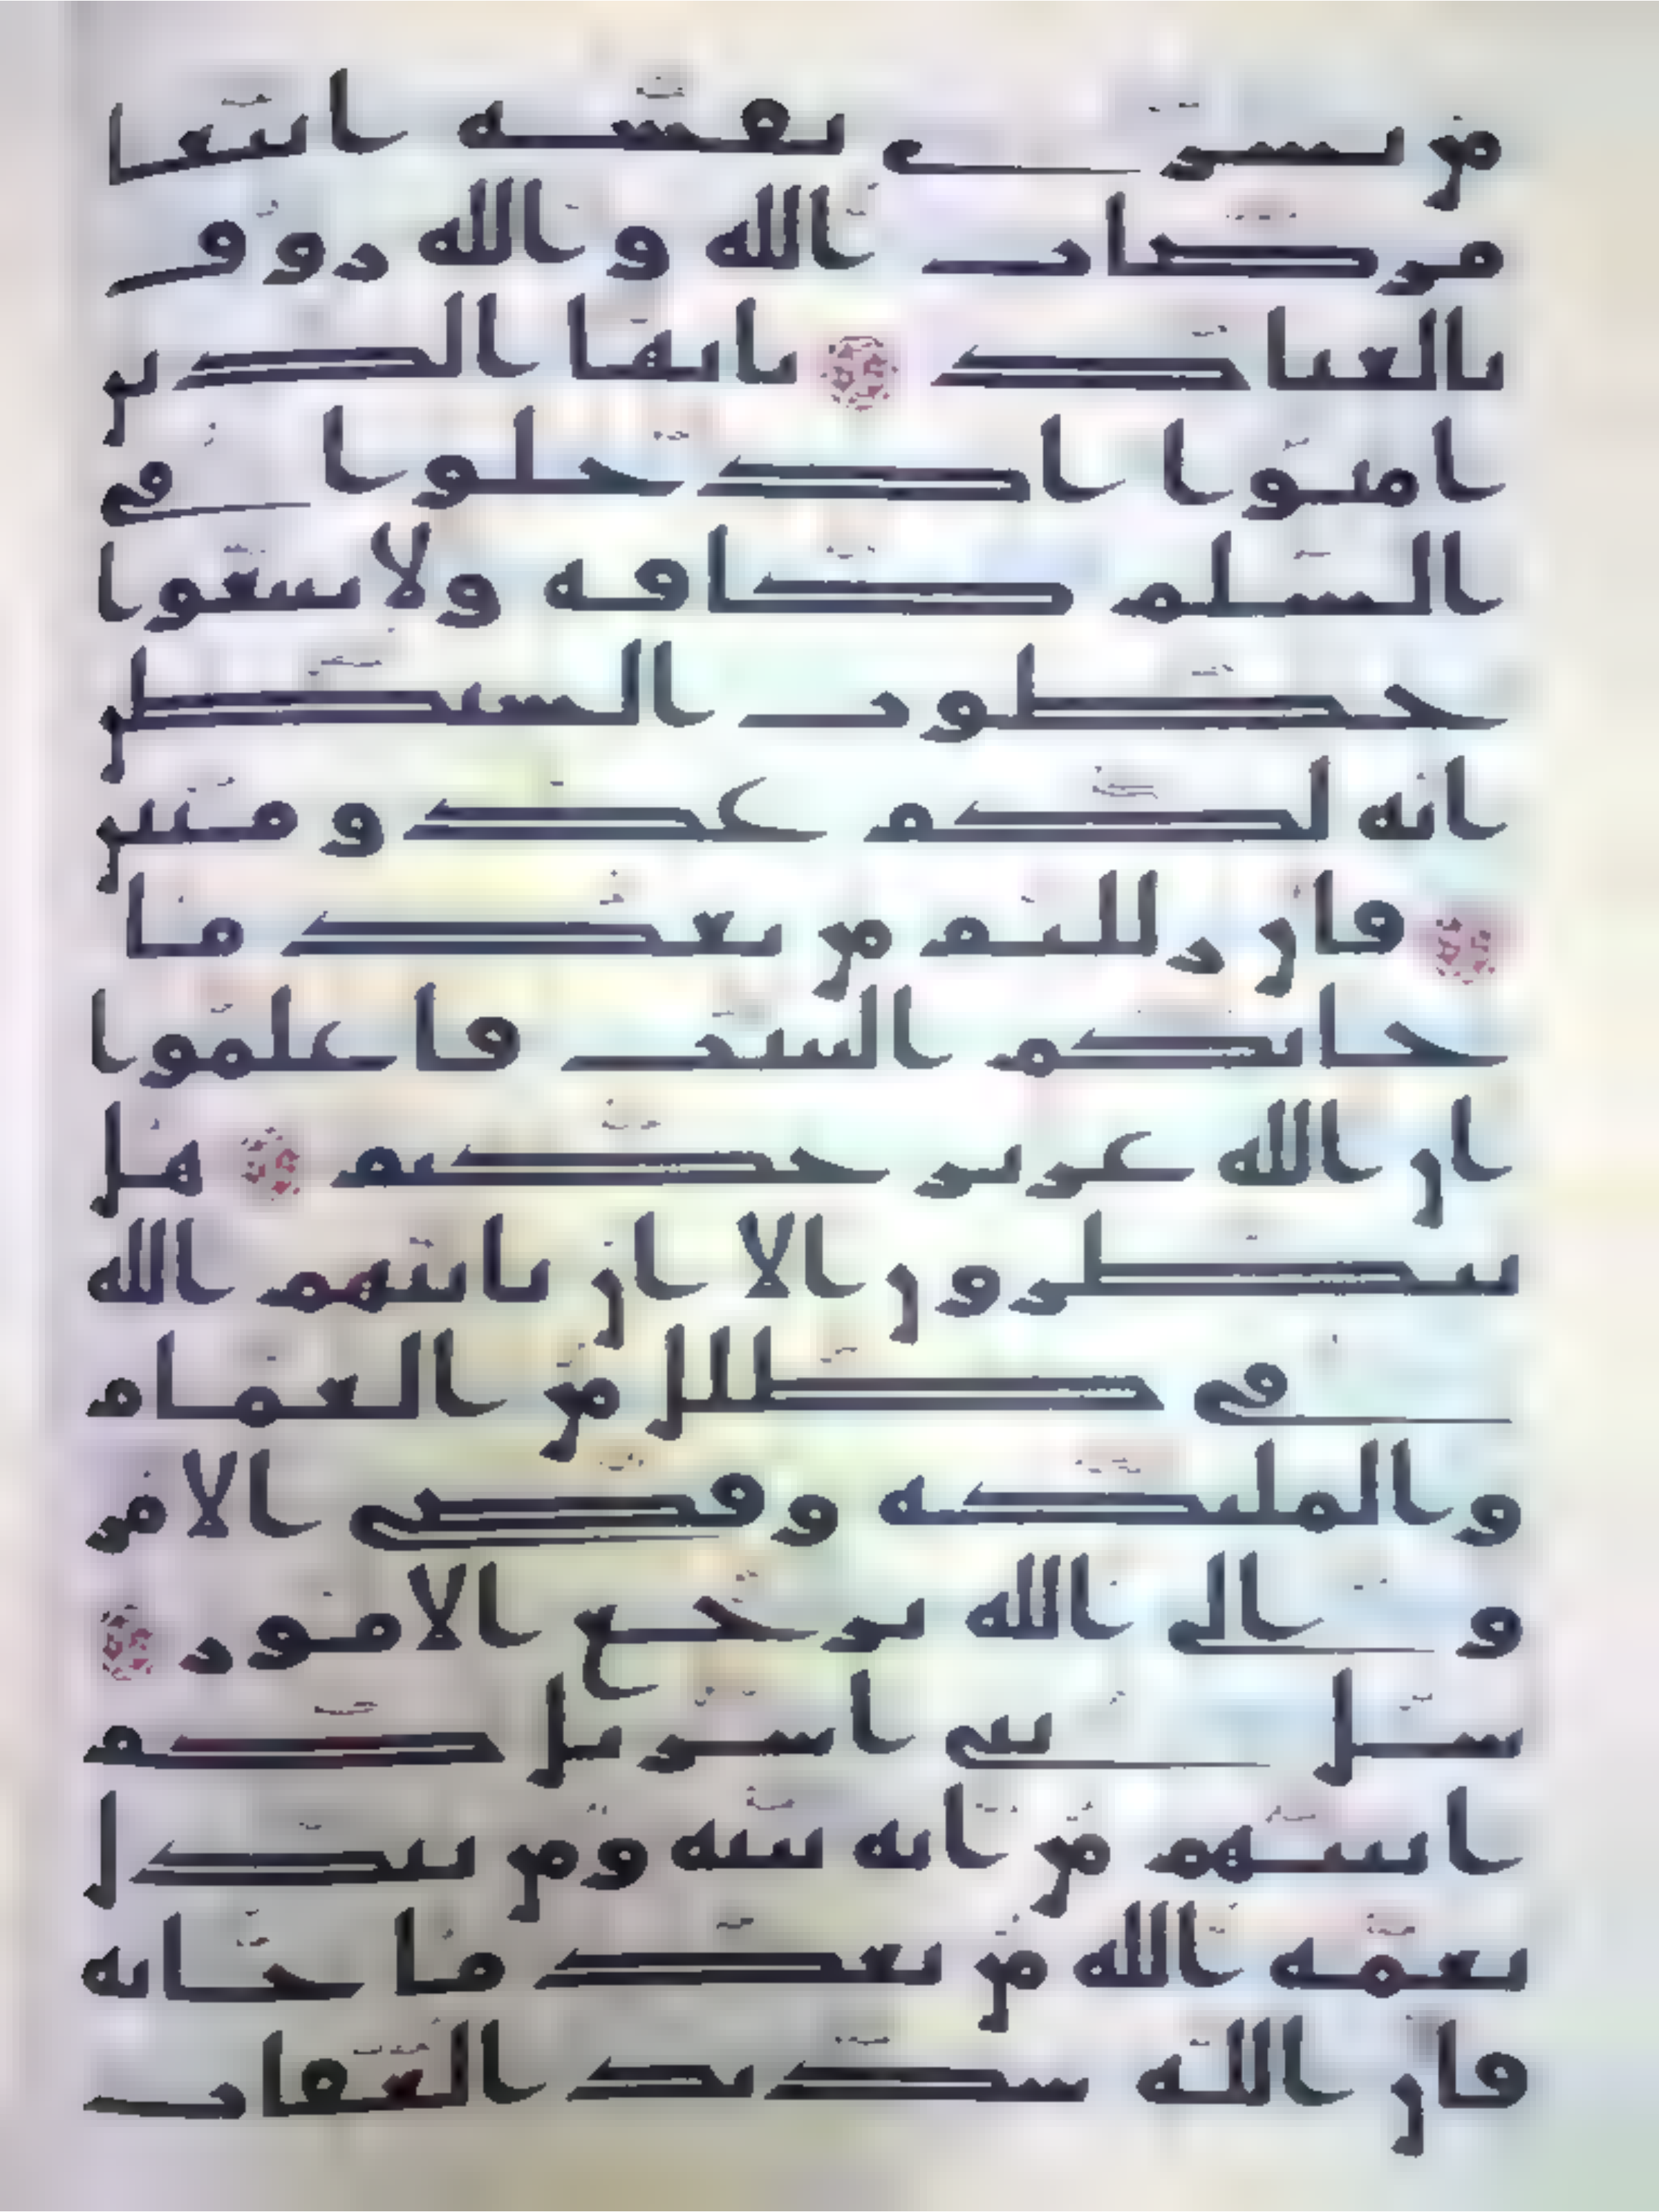 من يشري نفسه ابتغا
مرضات الله والله روف
بالعباد يايها الذين
امنوا ادخلوا في
السلم كافة ولا تتبعوا
خطوت الشيطن
انه لكم عدو مبين
فان زللتم من بعد ما
جاتكم البينت فاعلموا
ان الله عزيز حكيم هل
ينظرون الا ان ياتيهم الله
في ظلل من الغمام
والمليكة وقضي الامر
والي الله ترجع الامور
سل بني اسريل كم
اتينهم من اية بينة ومن يبدل
نعمة الله من بعد ما جاته
فان الله شديد العقاب